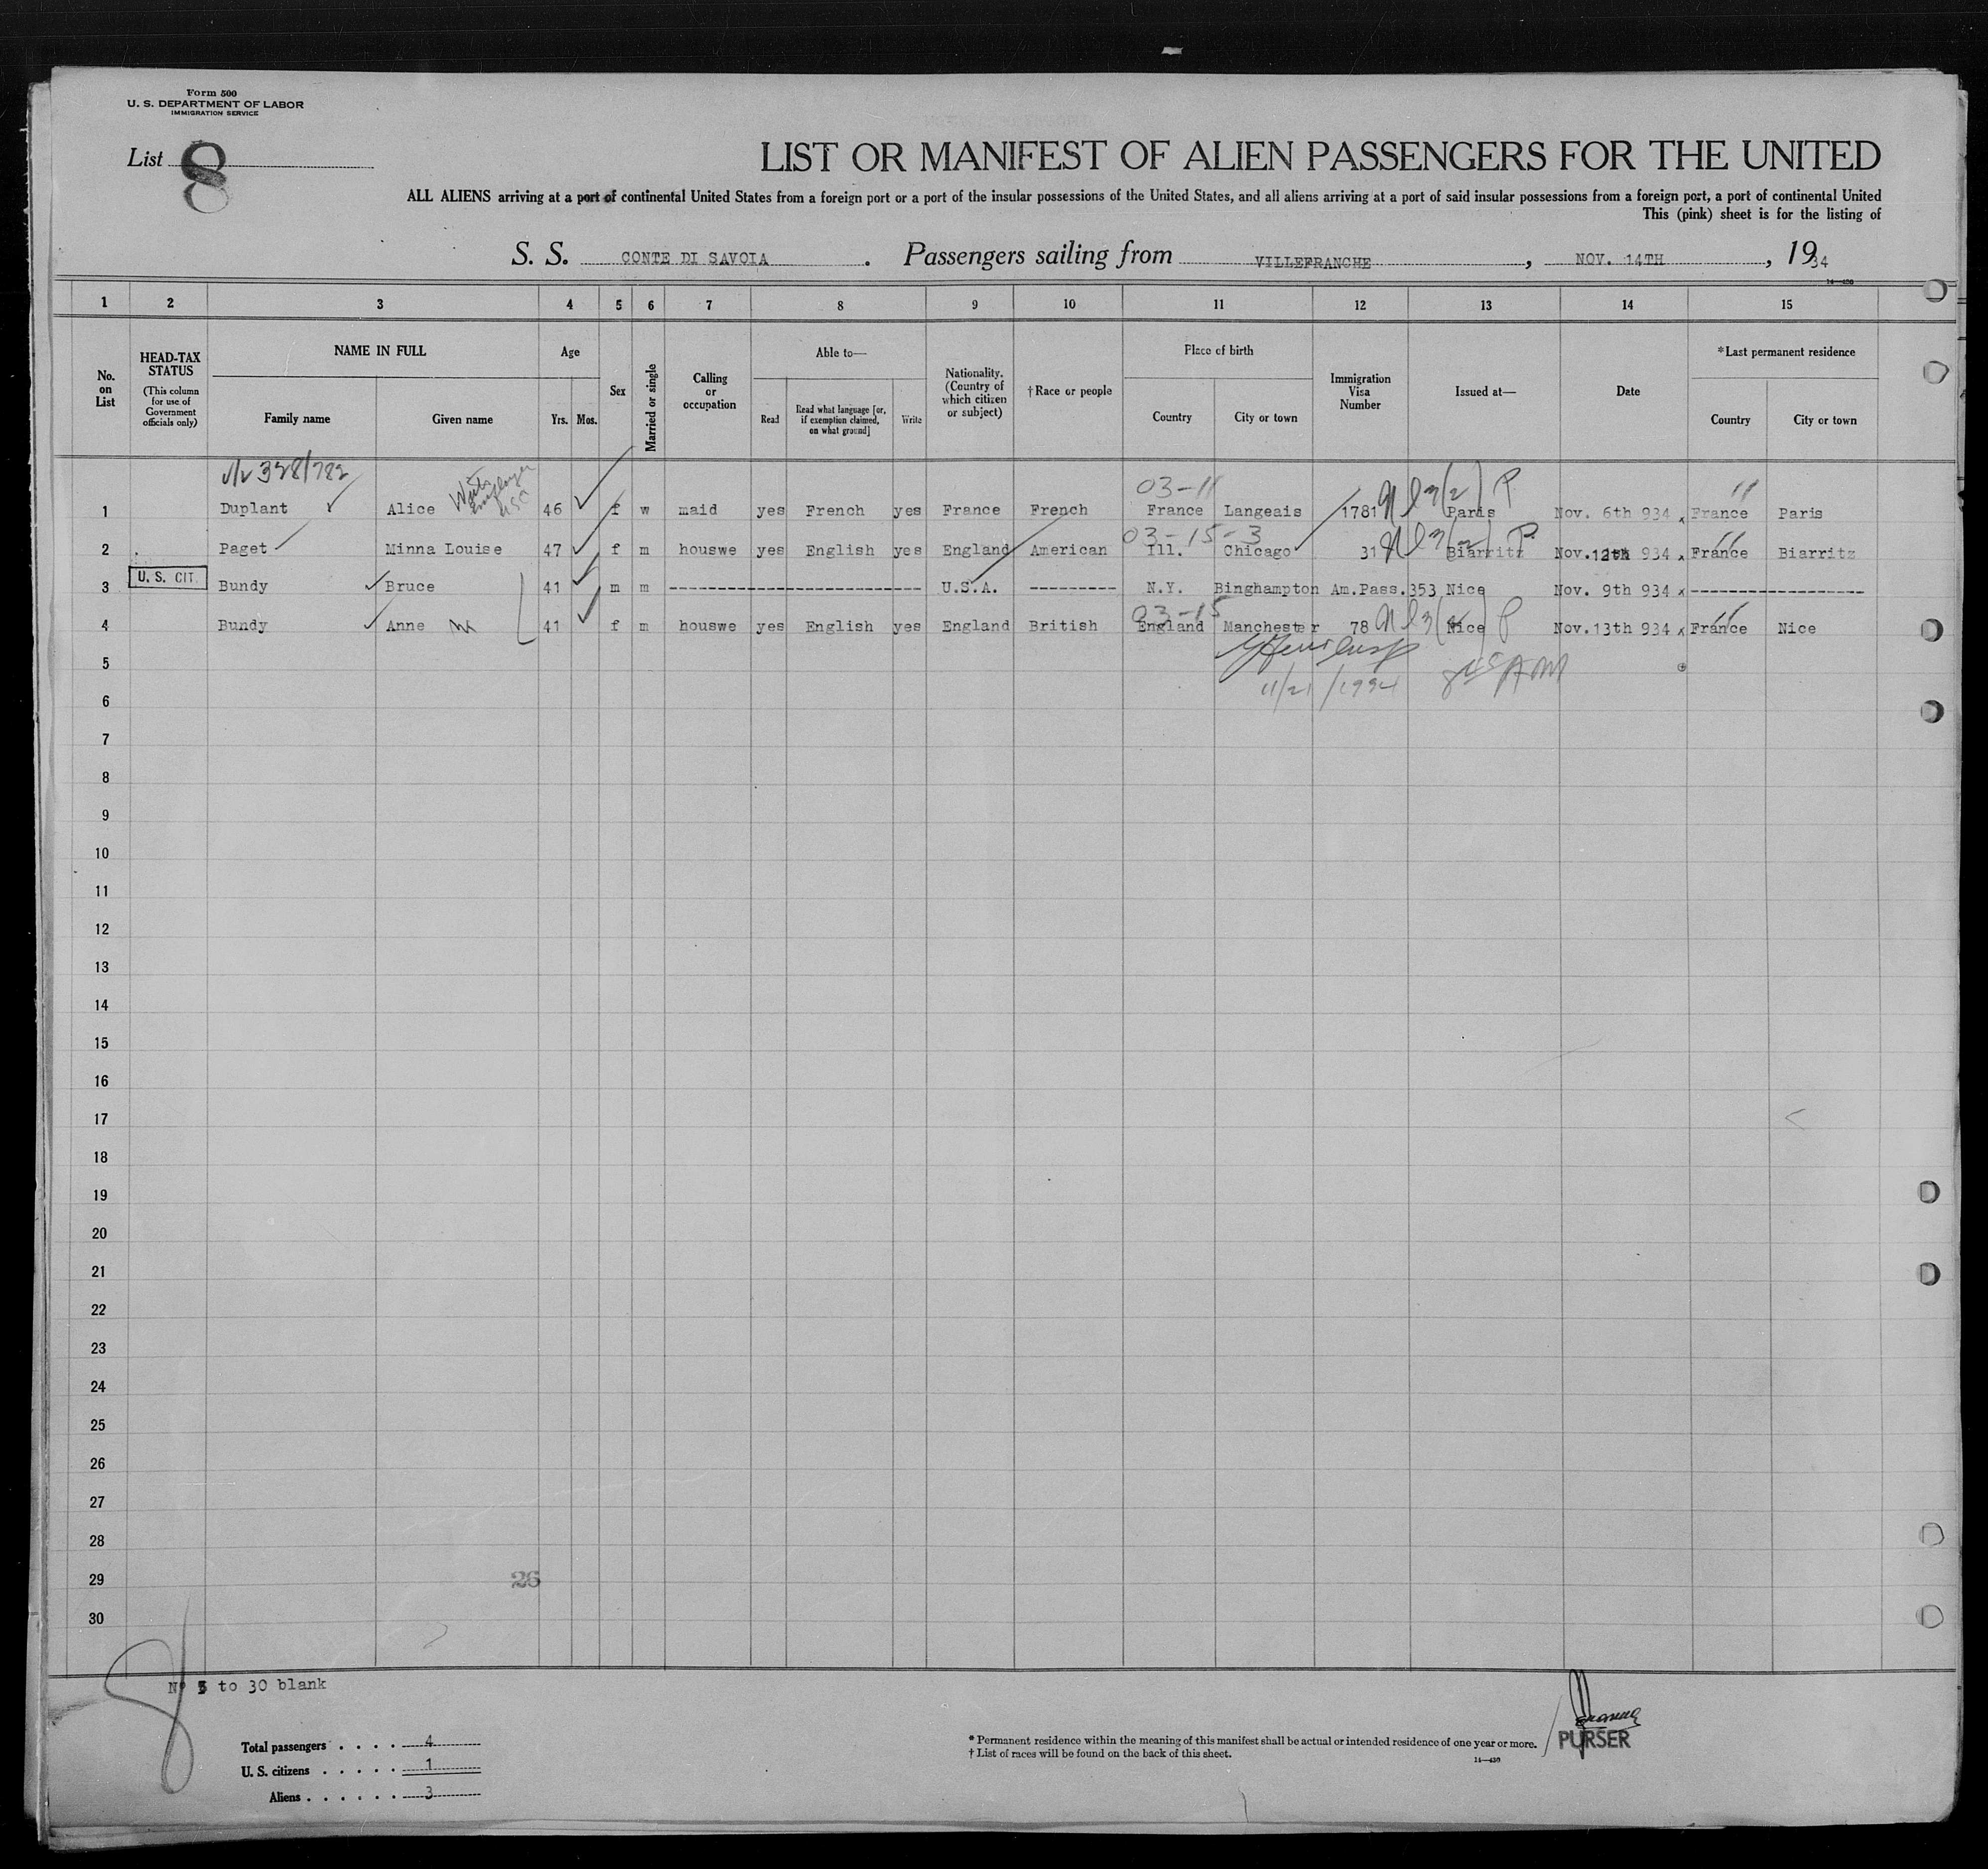 Form 500
U. S. DEPARTMENT OF LABOR
IMMIGRATION SERVICE
List 8
LIST OR MANIFEST OF ALIEN PASSENGERS FOR THE UNITED
ALL ALIENS arriving at a port of continental United States from a foreign port or a port of the insular possessions of the United States, and all aliens arriving at a port of said insular possessions from a foreign port, a port of continental United
This (pink) sheet is for the listing of
S. S. CONTE DI SAVOIA . Passengers sailing from VILLEFRANCHE , NOV. 14TH , 1934
14—430
1 2 3 4 5 6 7 8 9 10 11 12 13 14 15
No. on List
HEAD-TAX STATUS
(This column for use of Government officials only)
NAME IN FULL
Family name Given name
Age
Yrs. Mos.
Sex
Married or single
Calling or occupation
Able to—
Read Read what language [or, if exemption claimed, on what ground] Write
Nationality. (Country of which citizen or subject)
†Race or people
Place of birth
Country City or town
Immigration Visa Number
Issued at—
Date
*Last permanent residence
Country City or town
328/782
03-11 11
1 Duplant Alice 46 f w maid yes French yes France French France Langeais 1781 Paris Nov. 6th 934 France Paris
03-15-3 11
2 Paget Minna Louise 47 f m houswe yes English yes England American Ill. Chicago 31 Biarritz Nov.12th 934 France Biarritz
3 U. S. CIT. Bundy Bruce 41 m m ---------- U.S.A. --------- N.Y. Binghampton Am.Pass.353 Nice Nov. 9th 934 ------------------
03-15 11
4 Bundy Anne 41 f m houswe yes English yes England British England Manchester 78 Nice Nov.13th 934 France Nice
5
11/21/1934
6
7
8
9
10
11
12
13
14
15
16
17
18
19
20
21
22
23
24
25
26
27
28
29 26
30
Nº 5 to 30 blank
Total passengers . . . . 4
U. S. citizens . . . . . 1
Aliens . . . . . . 3
* Permanent residence within the meaning of this manifest shall be actual or intended residence of one year or more.
† List of races will be found on the back of this sheet.
14—430
PURSER